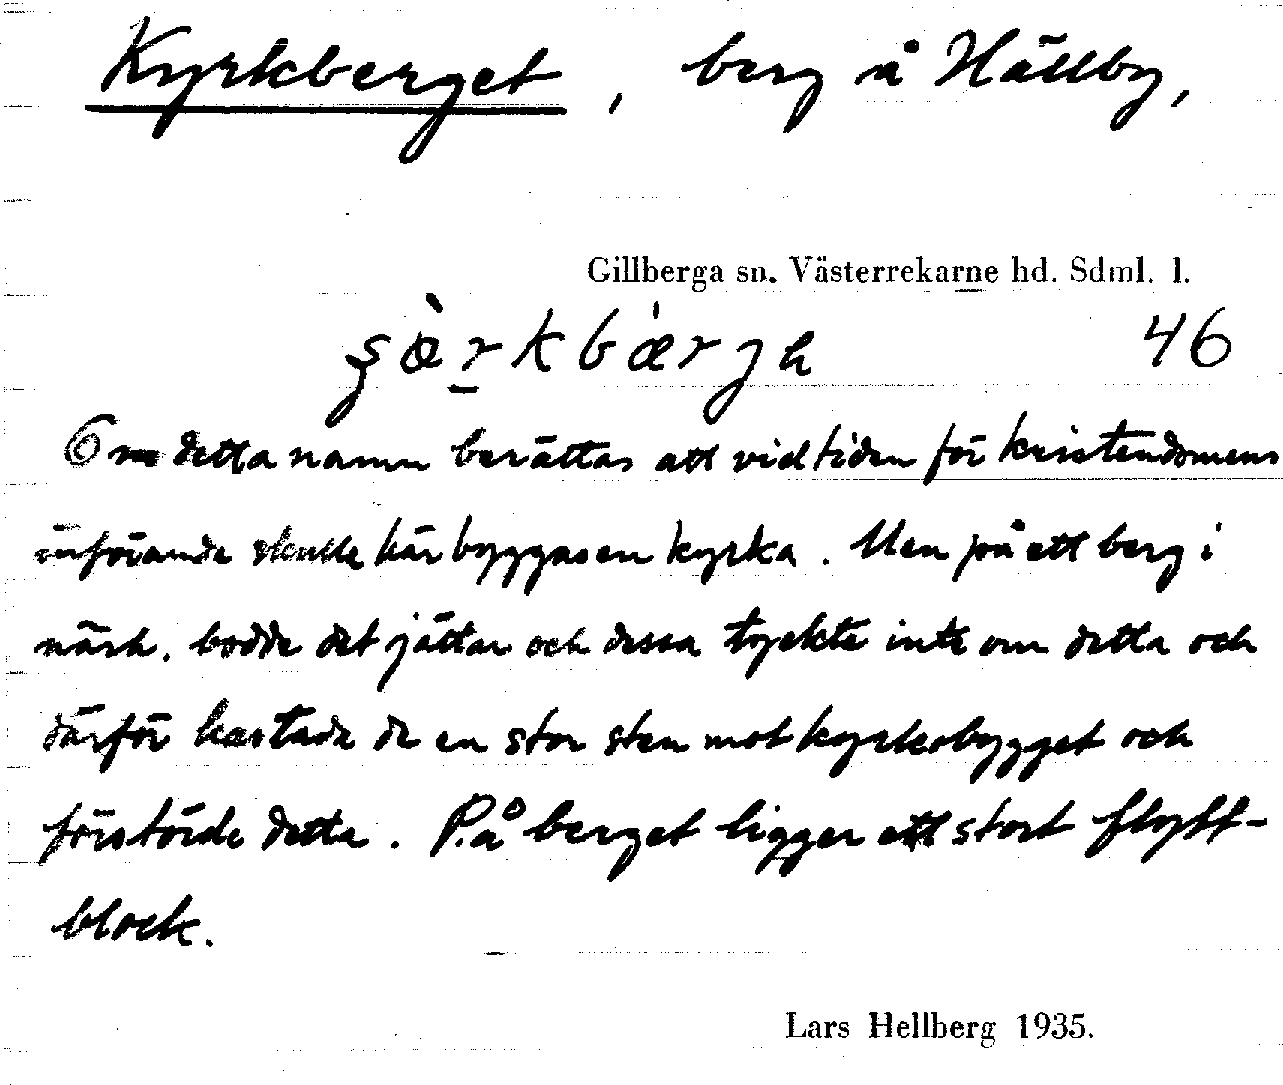 Kyrkberget, berg å Hällby,
Gillberga sn. Västerrekarne hd. Sdml. l.
46
Om detta namn berättas att vid tiden för kristendomens
införande skulle här byggas en kyrka. Men på ett berg i
närh. bodde det jättar och dessa tyckte inte om detta och
därför kastade de en stor sten mot kyrkobygget och
förstörde detta. På berget ligger ett stort flytt-
block.
Lars Hellberg 1935.